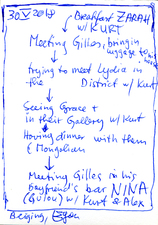 30 V 2018
Breakfast ZARAH
w/ KURT
Meeting Gilles, bringing
luggage to
Trying to meet Lydia in
the District w/ Kurt
Seeing Grace +
in their Gallery w/ Kurt
Having dinner with them
& Mongolian
Meeting Gilles in his
boyfriend's bar NINA
(Gulou) w/ Kurt & Alex
Beijing,